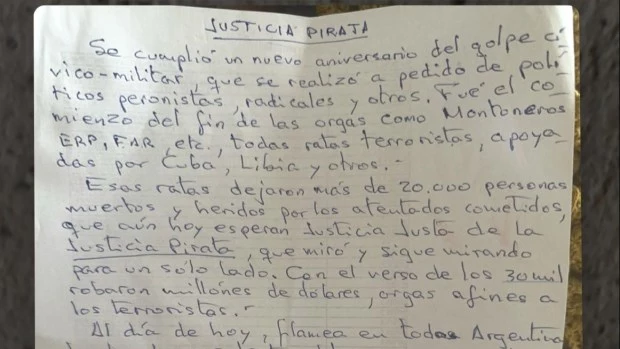 JUSTICIA PIRATA
Se cumplió un nuevo aniversario del golpe cí
vico-militar, que se realizó a pedido de polí
ticos peronistas, radicales y otros. Fué el co
mienzo del fin de las orgas como Montoneros
ERP, FAR, etc., todas ratas terroristas, apoya-
das por Cuba, Libia y otros.-
Esas ratas dejaron más de 20.000 personas
muertos y heridos por los atentados cometidos,
que aún hoy esperan Justicia Justa de la
Justicia Pirata, que miró y sigue mirando
para un sólo lado. Con el verso de los 30 mil
robaron millones de dólares, orgas afines a
los terroristas.-
Al día de hoy, flamea en todas Argentina